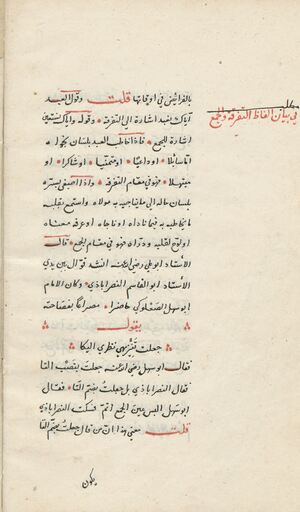 مطلب
في بيان الفاظ التفرقة والجمع
بالفرائض في اوقاتها قلت وقول العبد
اياك نعبد اشارة الى التفرقة وقوله واياك نستعين
اشارة للجمع فاذا خاطب العبد بلسان نجواه
اما سائلا او داعيا او مثنيا او شاكرا او
مبتهلا فهو في مقام التفرقة واذا اصغى بسره
بلسان حاله الى ما يناجيه به مولاه واستمع بقلبه
ما يخاطبه به فيما ناداه او ناجاه او عرفه معناه
او لوح لقلبه وذراه فهو في مقام الجمع قال
الأستاد ابو علي رضي الله عنه انشد قوال بين يدي
الأستاد ابو القاسم النصراباذي وكان الامام
ابو سهل الصعلوكي حاضرا
يقول
جعلت تنزهي نظري اليكا
فقال ابو سهل رضي الله عنه جعلت بنصب التا
فقال النصراباذي بل جعلت بضم التا فقال
ابو سهل اليس عين الجمع اتم فسكت النصراباذي
قلت معنى هذا ان من قال جعلت بضم التا
يكون